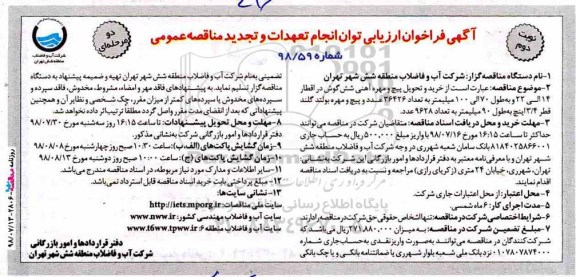 آگهی فراخوان ارزیابی توان انجام تعهدات و تجدید مناقصه عمومی
شماره ۹۸/۵۹
نوبت دوم
دو مرحله‌ای
شرکت آب و فاضلاب منطقه شش شهر تهران
۱-نام دستگاه مناقصه‌گزار: شرکت آب و فاضلاب منطقه شش شهر تهران
۲-موضوع مناقصه: عبارت است از خرید و تحویل پیچ و مهره آهنی شش گوش در اقطار
۱۴ الی ۲۲ و به‌طول ۷۰ الی ۱۰۰ میلیمتر به تعداد ۳۶۴۲۶ عدد و پیچ و مهره بولت گلند
قطر ۳/۴ اینچ به‌طول ۹۰ میلیمتر به تعداد ۹۶۲۸ عدد.
۳-مهلت خرید و محل دریافت اسناد مناقصه: متقاضیان شرکت در مناقصه می‌توانند
حداکثر تا ساعت ۱۶:۱۵ مورخ ۹۸/۰۷/۱۶ با واریز مبلغ ۵۰۰،۰۰۰ ریال به حساب جاری
۸۱۸۴۰۲۵۸۶۶۰۰۱ بانک سامان شعبه شهرری در وجه شرکت آب و فاضلاب منطقه شش
شهر تهران و با معرفی‌نامه معتبر به دفتر قراردادها و امور بازرگانی این شرکت به‌نشانی
تهران، شهرری، خیابان ۲۴ متری (زکریای رازی) مراجعه و نسبت به دریافت اسناد مناقصه
اقدام نمایند
۴-محل اعتبار: از محل اعتبارات جاری شرکت.
۵-مدت اجرای کار: ۶ ماه شمسی.
۶-شرایط اختصاصی شرکت در مناقصه: تنها اشخاص حقوقی حق شرکت در مناقصه را دارند.
۷-مبلغ تضمین شرکت در مناقصه: به میزان ۲۷۱،۸۸۰،۰۰۰ ریال می‌باشد که
شرکت‌کنندگان در مناقصه می‌توانند به‌صورت واریز نقدی به‌حساب جاری شماره
۰۱۰۷۸۰۷۸۷۴۰۰۰ نزد بانک ملی شعبه بلوار شهرری یا ضمانتنامه بانکی و یا چک بانکی
تضمینی به‌نام شرکت آب و فاضلاب منطقه شش شهر تهران تهیه و ضمیمه پیشنهاد به دستگاه
مناقصه‌گزار تسلیم نماید. به پیشنهادهای فاقد مهر و امضاء، مشروط، مخدوش، فاقد سپرده و
سپرده‌های مخدوش یا سپرده‌های کمتر از میزان مقرر، چک شخصی و نظایر آن و همچنین
پیشنهاداتی که بعد از انقضای مدت مقرر واصل گردد مطلقا ترتیب‌اثر داده نخواهد شد.
۸-مهلت و محل تحویل پیشنهادات: تا ساعت ۱۶:۱۵ روز سه‌شنبه مورخ ۹۸/۰۷/۳۰
دفتر قراردادها و امور بازرگانی شرکت به‌نشانی مذکور.
۹-زمان گشایش پاکت‌های (الف،ب): ساعت ۱۰:۳۰ صبح روز چهارشنبه مورخ ۹۸/۰۸/۰۸
۱۰-زمان گشایش پاکت‌های (ج): ساعت ۱۰:۰۰ صبح روز دوشنبه مورخ ۹۸/۰۸/۱۳
۱۱-سایر اطلاعات و مدارک مورد نیاز مربوطه، در اسناد مناقصه مندرج می‌باشد.
۱۲-مبلغ پرداختی بابت خرید اسناد مناقصه قابل استرداد نمی‌باشد.
۱۳-نشانی سایت‌ها:
سایت ملی مناقصات: http://iets.mporg.ir
سایت آب و فاضلاب مهندسی کشور: www.nww.ir
سایت آب و فاضلاب منطقه ۶: www.t6ww.tpww.ir
دفتر قراردادها و امور بازرگانی
شرکت آب و فاضلاب منطقه شش شهر تهران